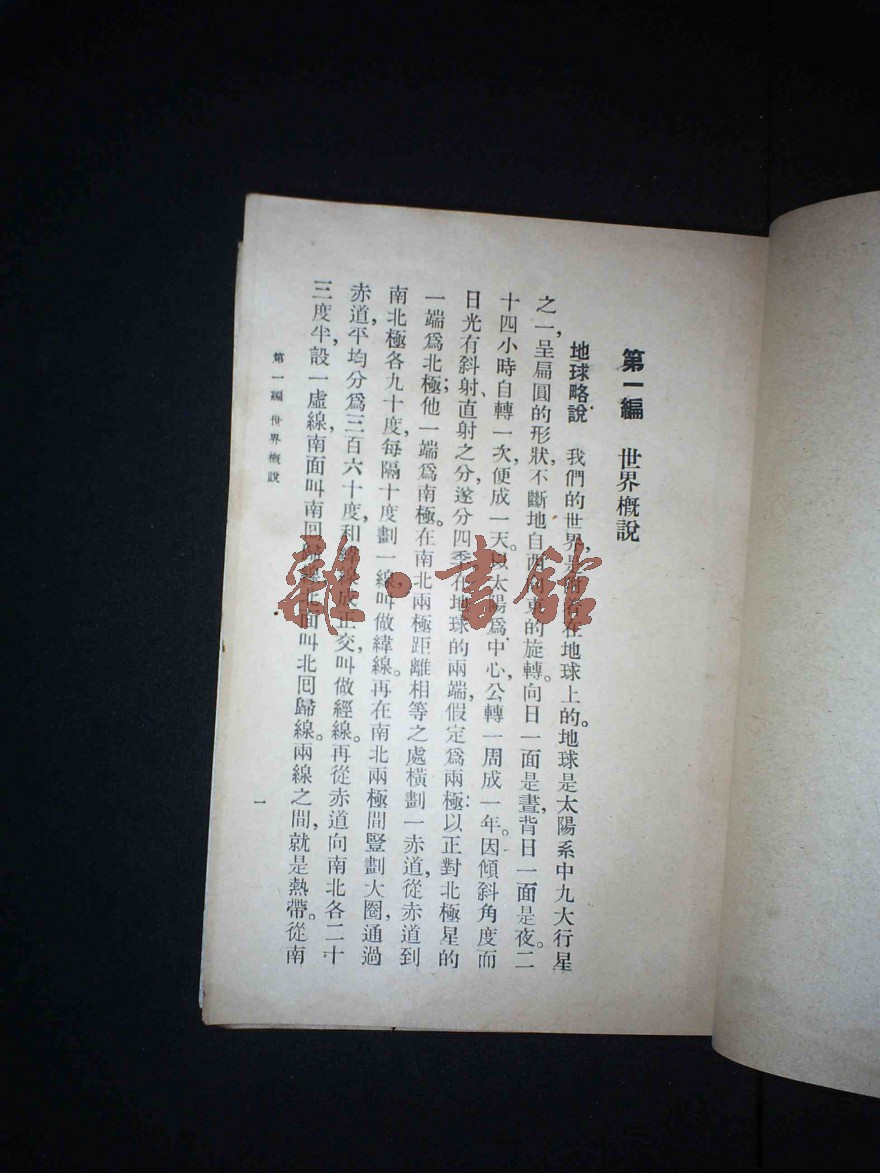 第一編　世界概說
地球略說　我們的世界,是附存在地球上的。地球是太陽系中九大行星
之一,呈扁圓的形狀,不斷地自西向東的旋轉。向日一面是晝,背日一面是夜。二
十四小時自轉一次,便成一天。以太陽爲中心,公轉一周成一年。因傾斜角度而
日光有斜射、直射之分,遂分四季。在地球的兩端,假定爲兩極:以正對北極星的
一端爲北極;他一端爲南極。在南北兩極距離相等之處橫劃一赤道,從赤道到
南北極各九十度,每隔十度劃一線,叫做緯線。再在南北兩極間豎劃大圈,通過
赤道,平均分爲三百六十度,和緯線成正交,叫做經線。再從赤道向南北各二十
三度半,設一虛線,南面叫南回歸線,北面叫北囘歸線。兩線之間,就是熱帶。從南
第一編　世界概說
一
雜·書館